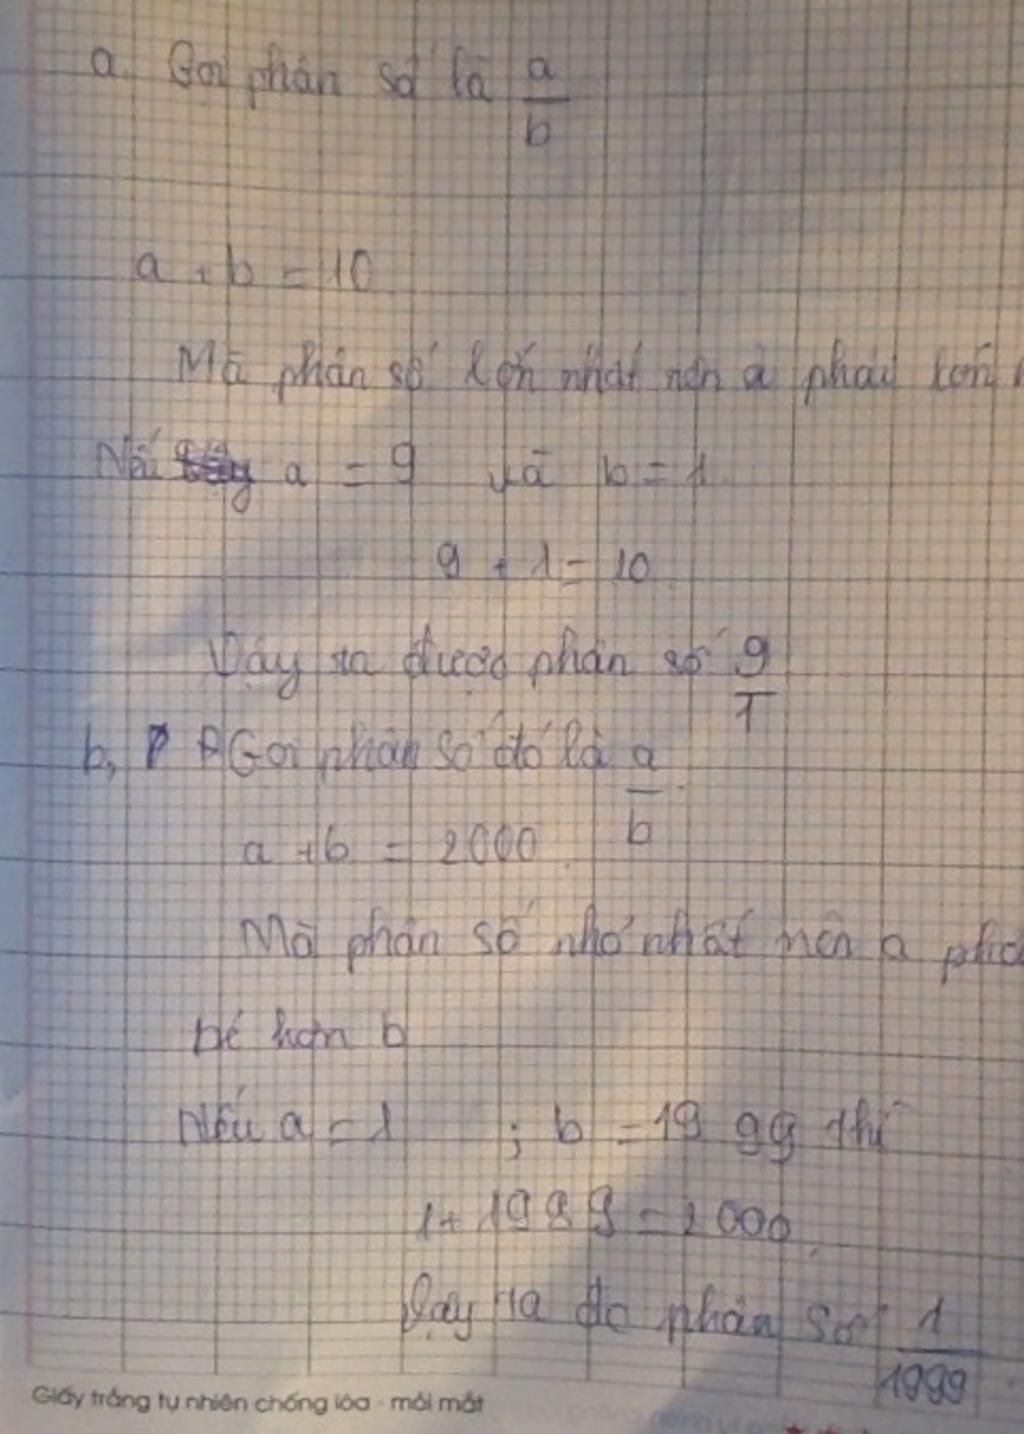 a. Gọi phân số là a/b
a + b = 10
Mà phân số lớn nhất nên a phải lớn
Nế a = 9 và b = 1
9 + 1 = 10
Vậy ta được phân số 9/1
b, Gọi phân số đó là a/b
a + b = 2000.
Mà phân số nhỏ nhất nên a
bé hơn b
Nếu a = 1 ; b = 1999 thì
1 + 1999 = 2000.
Vậy ta đc phân số 1/1999
Giấy trắng tự nhiên chống lóa - mỏi mắt